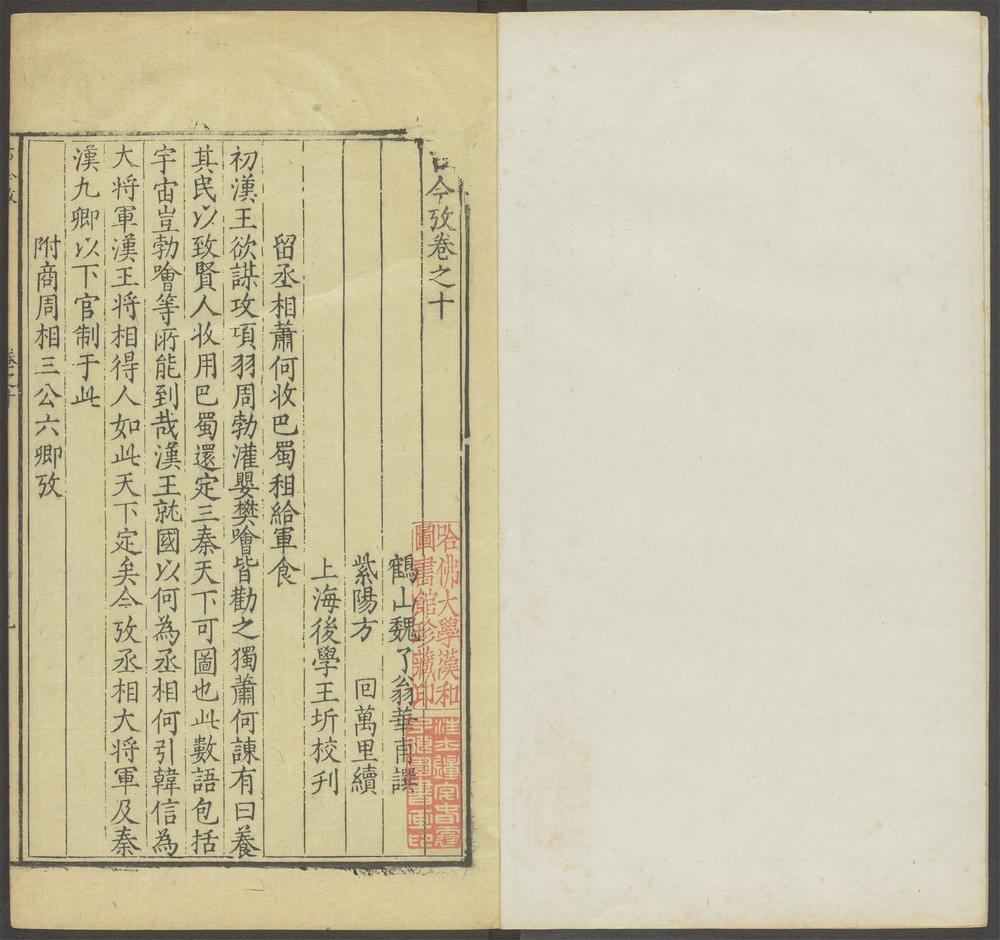 古今攷卷之十
鶴山魏了翁華甫譔
紫陽方　回萬里續
上海後學王圻校刋
留丞相蕭何收巴蜀租給軍食
初漢王欲謀攻項羽周勃灌嬰樊噲皆勸之獨蕭何諫有曰養
其民以致賢人收用巴蜀還定三秦天下可圖也此數語包括
宇宙豈勃噲等所能到哉漢王就國以何為丞相何引韓信為
大将軍漢王将相得人如此天下定矣今攷丞相大将軍及秦
漢九卿以下官制于此
附商周相三公六卿攷
哈佛大學漢和
圖書館珍藏印